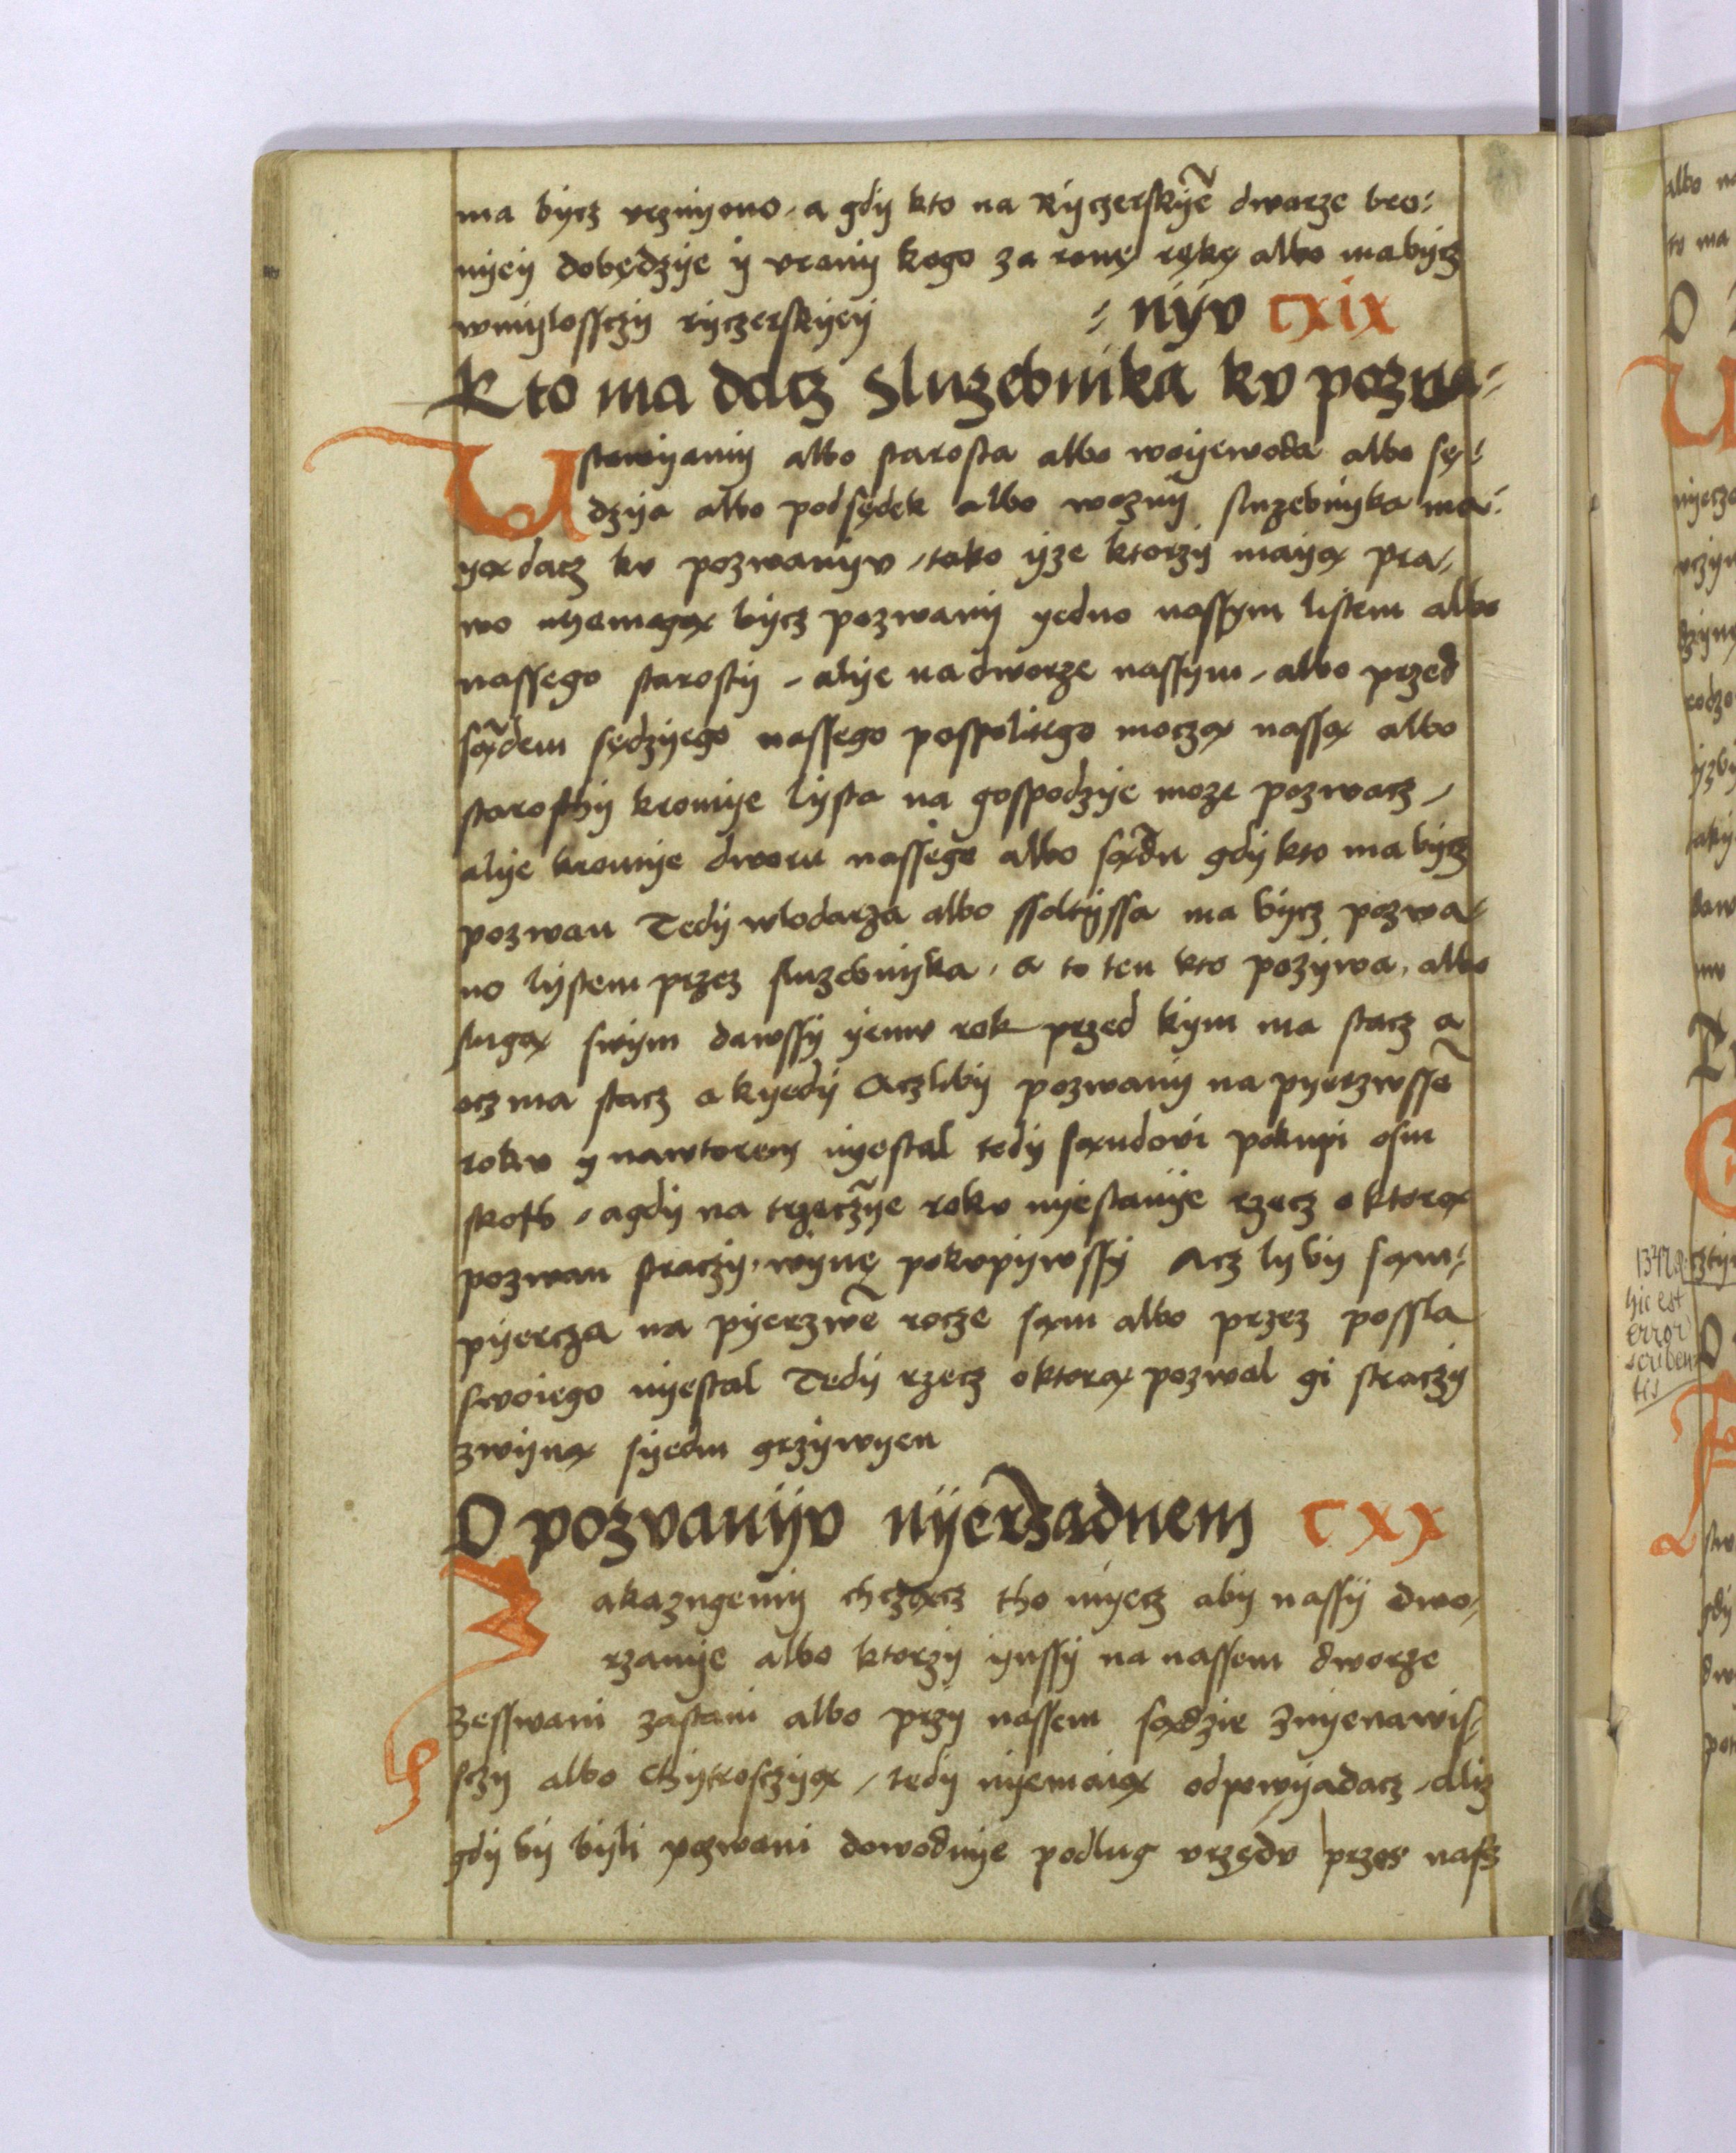 ma bycz vcznyono, a gdy kto na Ryczerskyē dworze bro⸗
nyey dobędzye y vrany kogo za ronę rękę albo ma bycz
wmylosſczy ryczerskyey ⸗ nyv cxix
Kto ma dacz Sluzebnika kv pozwa⸗
Ustawyamy albo starosta albo woyewoda albo sę⸗
dzya albo podsędek albo wozny sluzebnyka ma⸗
yą dacz kv pozwanyv, tako yze ktorzy mayą pra⸗
wo nyemagą bycz pozwany yedno nasſym listem albo
nasſego starosty, alye na dworze nasſym, albo przed
sądem sędzyego nasſego pospolitego moczą nasſą albo
starosthy kromye lysta na gospodzye moze pozwacz,
alye kromye dworu nasſego albo sądu gdy kto ma bycz
pozwan Tedy wlodarza albo sſoltysſa ma bycz pozwa⸗
no lystem przez sluzebnyka, a to ten kto pozywa, albo
slugą swym dawsſy yemv rok przed kym ma stacz a
ocz ma stacz a kyedy Aczliby pozwany na pyerzwsſē
rokv y nawtorem nyestal tedy sąndovi pokupi osm
skotb, agdy na trzeczye rokv nyestanye rzecz o ktorą
pozwan straczy, wynę pokvpywsſy Acz lyby sąm⸗
pyercza na pyerzwē rocze sąm albo przez posſla
swoiego nyestal Tedy rzecz oktorą pozwal gi straczy
zwyną syedm grzywyen
O pozvanyv nyerzadnem cxx
Wakazugemy chcząncz tho myecz aby nasſy dwo⸗
rzanye albo ktorzy ynsſy na nasſem dworze
zesſwani zastani albo przy nasſem sądzie znyenawis⸗
sczy albo chytrosczyą, tedy nyemaią odpowyadacz, aliz
gdy by byli pozwani dowodnye podlug vrzędv przes nasz
1347 a.
hic est
error
scriben
tis